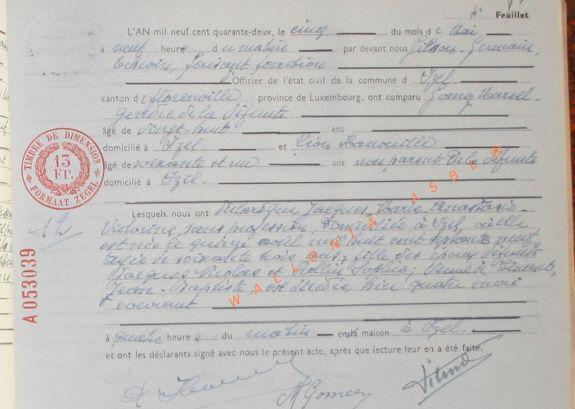 4e Feuillet
L'AN mil neuf cent quarante-deux, le cinq du mois de Mai
à neuf heures du matin par devant nous Gilson, Germain,
faisant fonction
d'Officier de l'état civil de la commune d' Izel
canton de Florenville province de Luxembourg, ont comparu Marcel
gendre de la défunte
âgé de vingt-huit ans
domicilié à Izel et Léon
âgé de soixante et un ans non parent de la défunte
domicilié à Izel.
TIMBRE DE DIMENSION
13 Fr.
FORMAAT ZEGEL
12
A 053039
Lesquels nous ont déclaré que Jacques, Marie Anastasie
Victorine, sans profession, domiciliée à Izel, où elle
est née le quinze avril mil huit cent septante neuf
âgée de soixante trois ans, fille des époux défunts
Jacques Nicolas et Sophie; veuve de
Jean-Baptiste, est décédée hier quatre mai
courant
à quatre heures du matin en sa maison à Izel.
et ont les déclarants signé avec nous le présent acte, après que lecture leur en a été faite.
WALLONIA ASBL